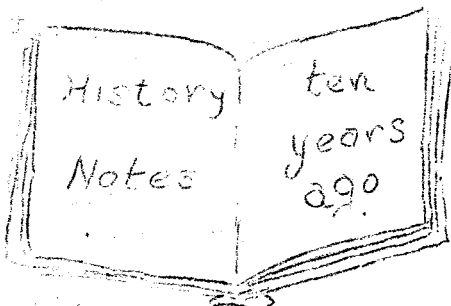 History
Notes
ten
years
ago.